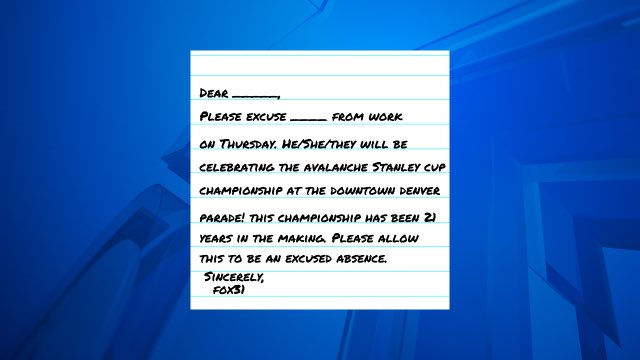 Dear _____,
Please excuse ____ from work
on Thursday. He/She/they will be
celebrating the avalanche Stanley cup
championship at the downtown denver
parade! this championship has been 21
years in the making. Please allow
this to be an excused absence.
Sincerely,
fox31